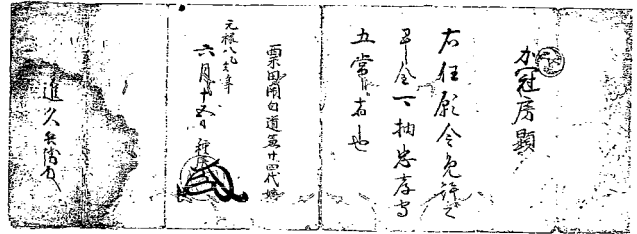 加冠房顕
右任願令免許之
早全可抽忠孝守
五常者也
粟田関白道兼廿四代嫡
元禄八乙亥年
六月十五日
進久兵衛殿